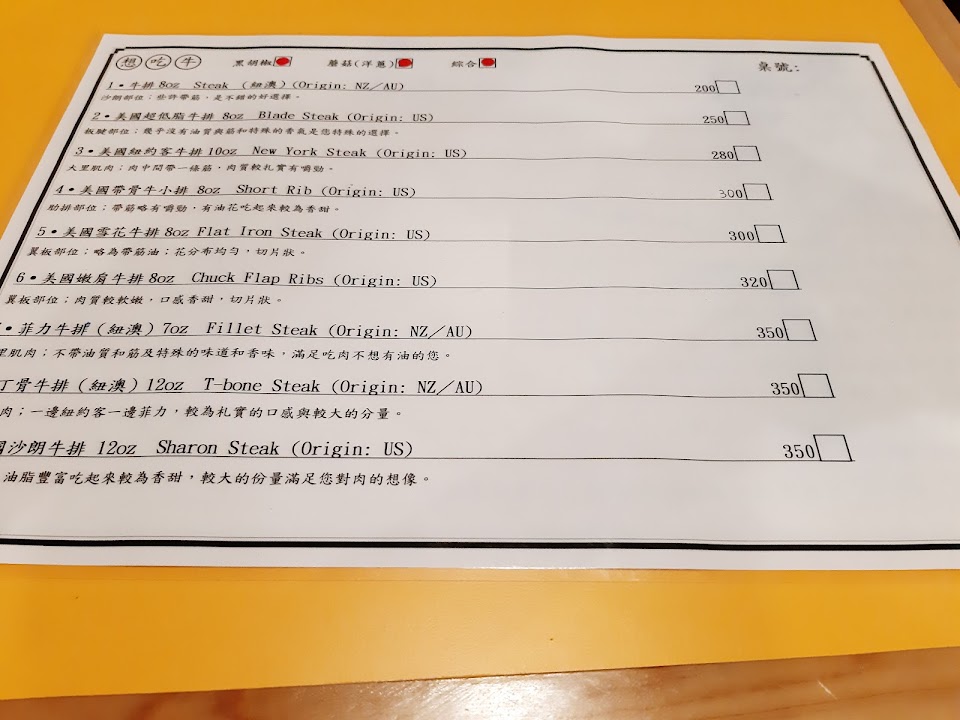 想吃牛 黑胡椒 蘑菇(洋蔥) 綜合 桌號:
1•牛排8oz Steak (紐澳)(Origin: NZ/AU) 200
沙朗部位;些許帶筋,是不錯的好選擇。
2•美國超低脂牛排 8oz Blade Steak (Origin: US) 250
板腱部位;幾乎沒有油質與筋和特殊的香氣是您特殊的選擇。
3•美國紐約客牛排10oz New York Steak (Origin: US) 280
大里肌肉;肉中間帶一條筋,肉質較札實有嚼勁。
4•美國帶骨牛小排 8oz Short Rib (Origin: US) 300
肋排部位;帶筋略有嚼勁,有油花吃起來較為香甜。
5•美國雪花牛排8oz Flat Iron Steak (Origin: US) 300
翼板部位;略為帶筋油;花分布均勻,切片狀。
6•美國嫩肩牛排8oz Chuck Flap Ribs (Origin: US) 320
翼板部位;肉質較軟嫩,口感香甜,切片狀。
•菲力牛排(紐澳) 7oz Fillet Steak (Origin: NZ/AU) 350
里肌肉;不帶油質和筋及特殊的味道和香味,滿足吃肉不想有油的您。
丁骨牛排(紐澳) 12oz T-bone Steak (Origin: NZ/AU) 350
肉;一邊紐約客一邊菲力,較為札實的口感與較大的分量。
國沙朗牛排 12oz Sharon Steak (Origin: US) 350
油脂豐富吃起來較為香甜,較大的份量滿足您對肉的想像。